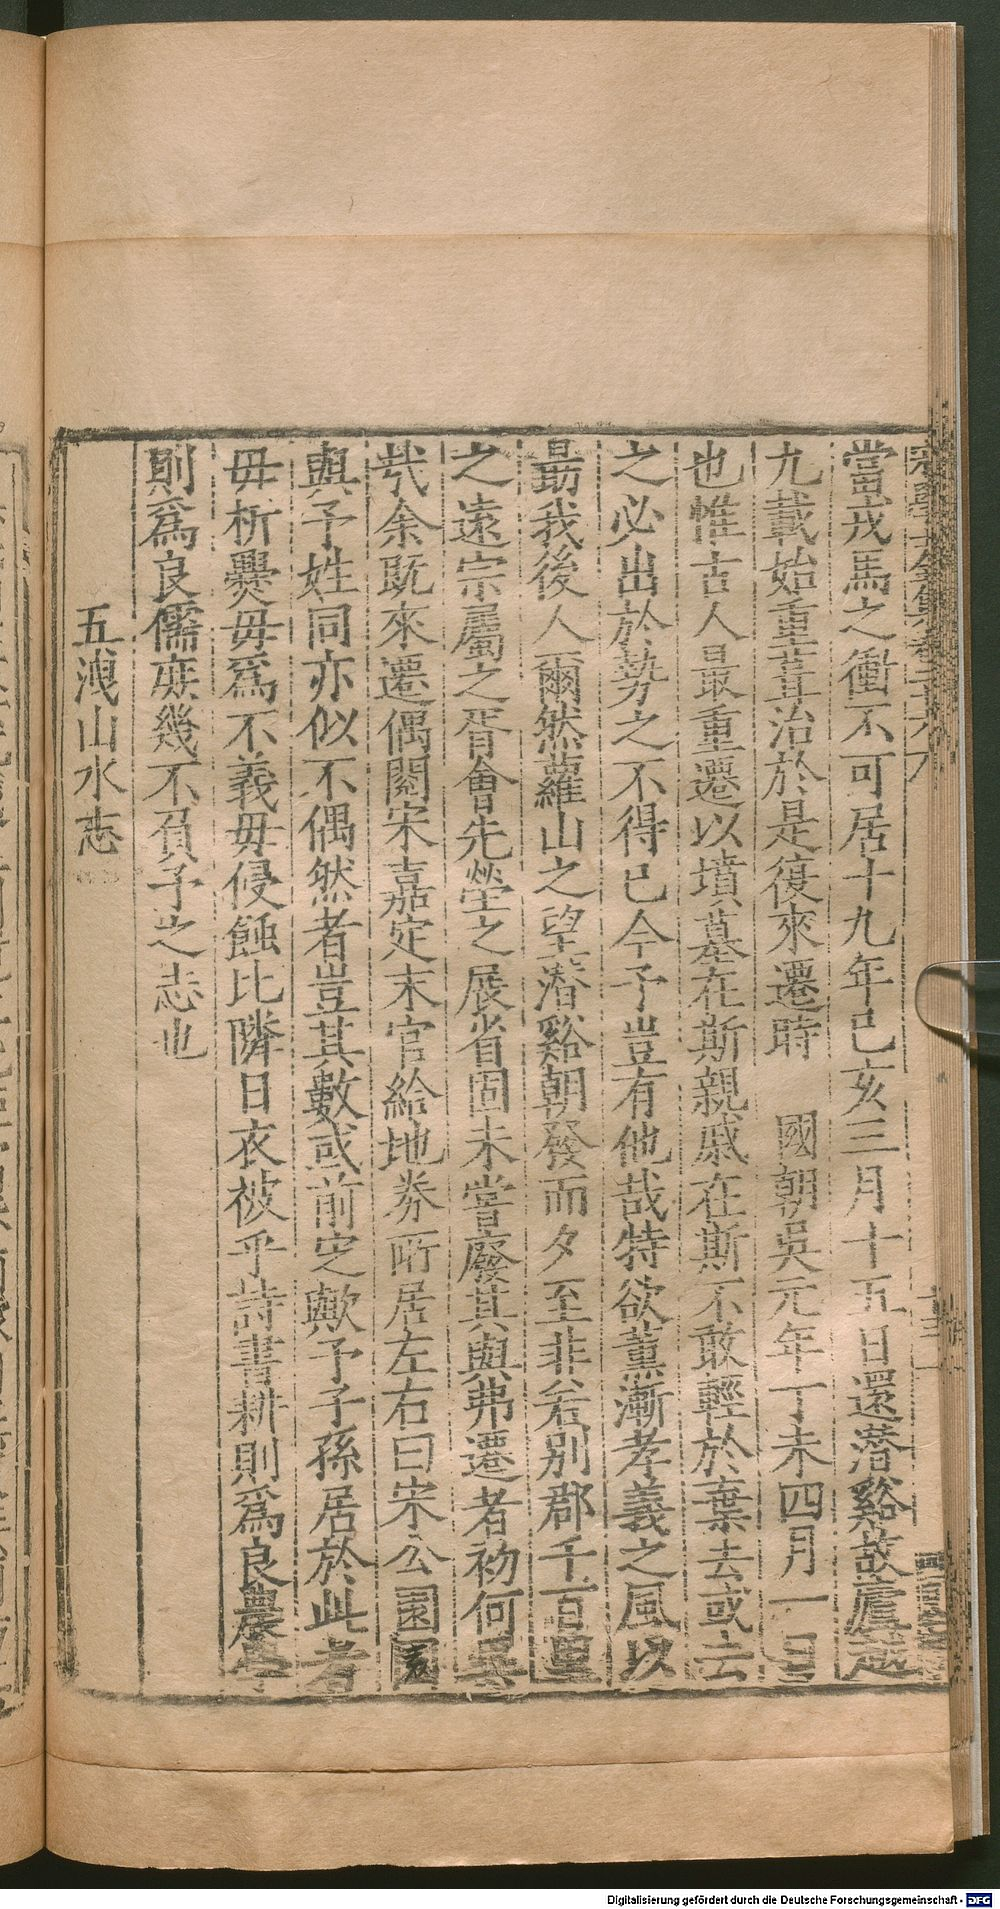 當戎馬之衝不可居十九年己亥三月十五日還潛谿故廬越
九載始重葺治於是復來遷時　國朝吳元年丁未四月一日
也惟古人最重遷以墳墓在斯親戚在斯不敢輕於棄去或云
之必出於勢之不得已今予豈有他哉特欲薰漸孝義之風以
勗我後人爾然蘿山之望潛谿朝發而夕至非若別郡千百里
之遠宗屬之胥會先塋之展省固未嘗廢其與弗遷者初何異
哉余旣來遷偶閱宋嘉定末官給地券所居左右曰宋公園
與予姓同亦似不偶然者豈其數或前定歟予子孫居於此者
毋析爨毋爲不義毋侵蝕比隣日衣被乎詩書耕則爲良農學
則爲良儒庶幾不負予之志也
五洩山水志
Digitalisierung gefördert durch die Deutsche Forschungsgemeinschaft - DFG